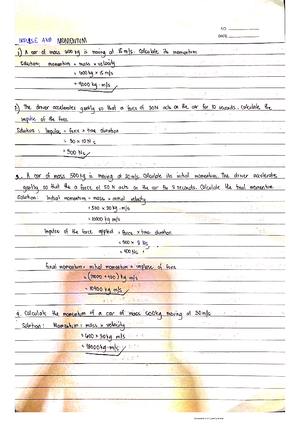 NO.
DATE
IMPULSE AND MOMENTUM
1.) A car of mass 600 kg is moving at 15 m/s. Calculate its momentum
Solution: momentum = mass × velocity
= 600 kg × 15 m/s
= 9000 kg · m/s
2.) The driver accelerates gently so that a force of 30 N acts on the car for 10 seconds. Calculate the
impulse of the force.
Solution: Impulse = force × time duration
= 30 × 10 N s
= 300 N s
3. A car of mass 500 kg is moving at 20 m/s. Calculate its initial momentum. The driver accelerates
gently so that the a force of 50 N acts on the car for 8 seconds. Calculate the final momentum.
Solution: Initial momentum = mass × initial velocity
= 500 × 20 kg · m/s
= 10000 kg m/s
Impulse of the force applied = force × time duration
= 50 × 8 Ns
= 400 Ns
final momentum = initial momentum + impulse of force
= (10000 + 400) kg m/s
= 10400 kg · m/s
4. Calculate the momentum of a car of mass 600 kg moving at 30 m/s
Solution: Momentum = mass × velocity
= 600 × 30 kg m/s
= 18000 kg · m/s